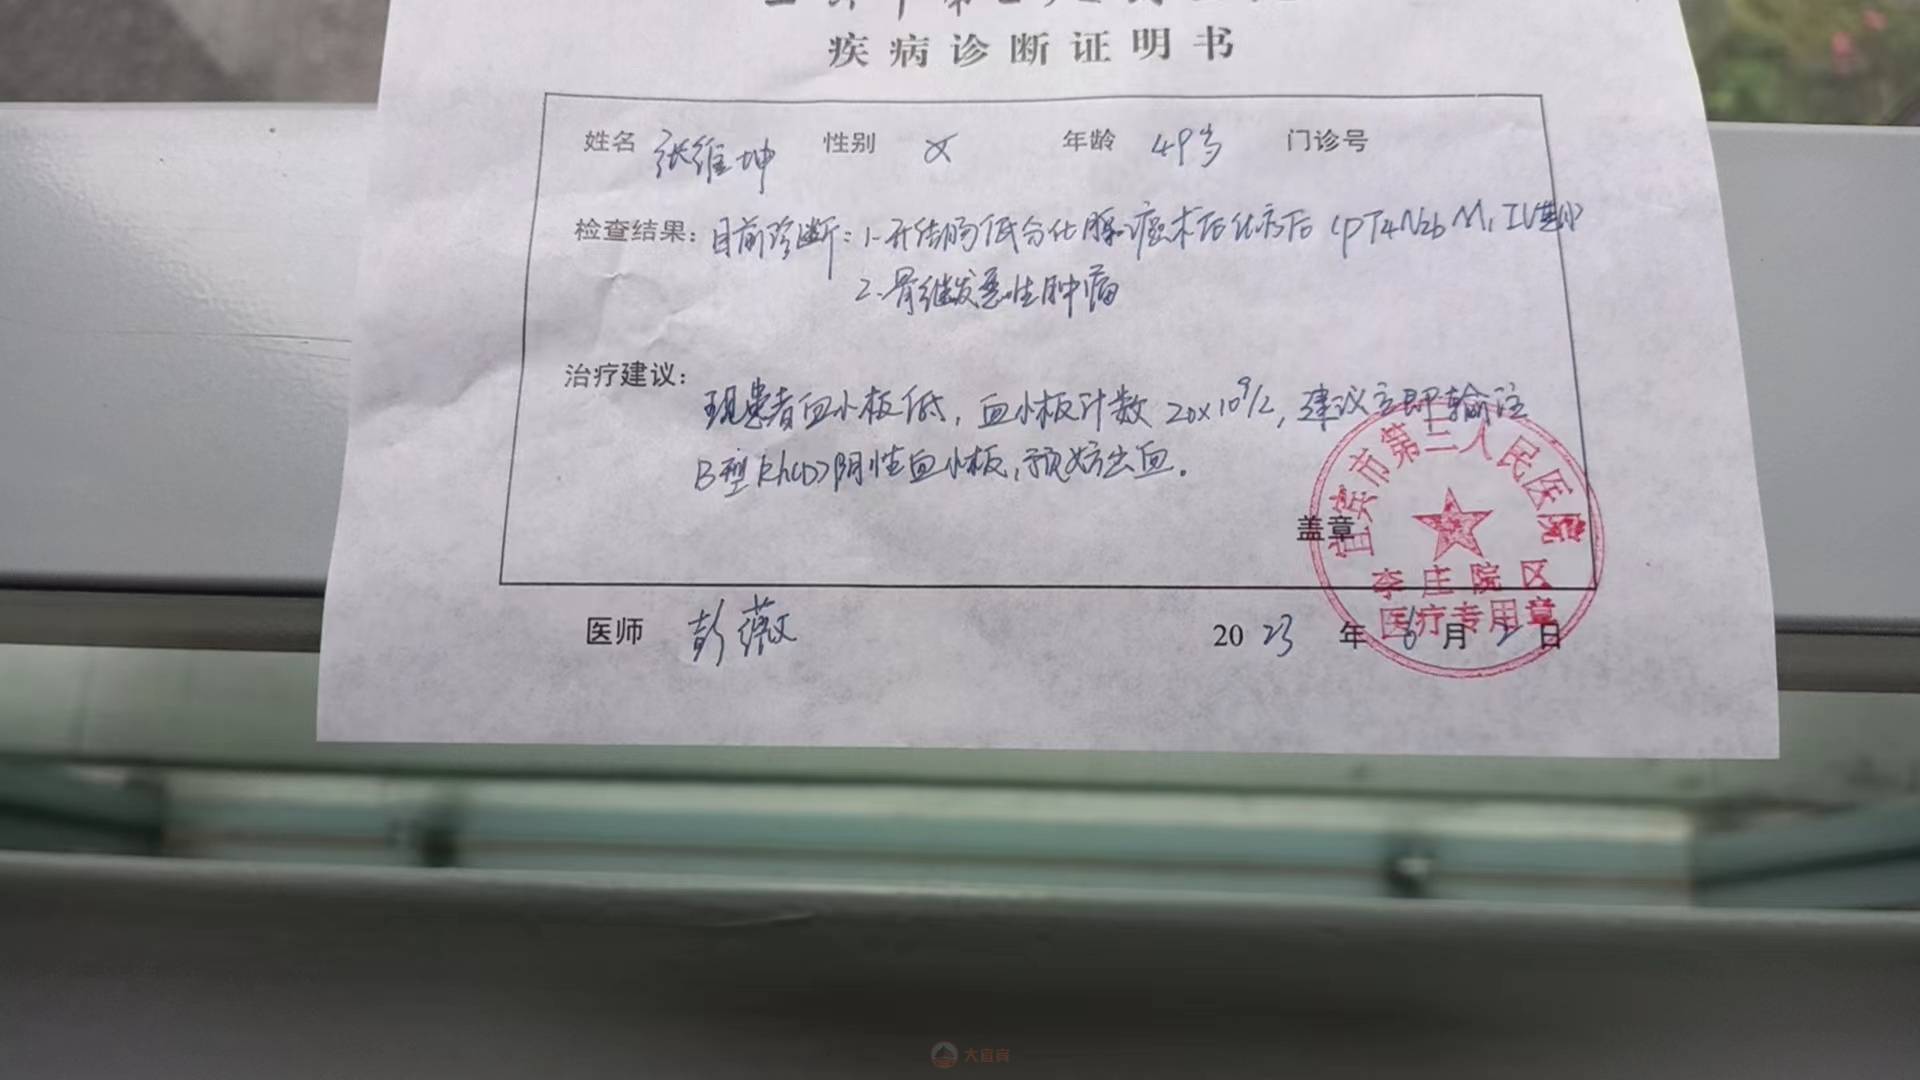 疾病诊断证明书
姓名 张维坤 性别 女 年龄 49岁 门诊号
检查结果: 目前诊断: 1.升结肠低分化腺癌术后化疗后 (pT4N2bM1 IV期)
2.骨继发恶性肿瘤
治疗建议:
现患者血小板低, 血小板计数 20×10^9/L, 建议立即输注
B型Rh(D)阴性血小板, 预防出血.
盖章
宜宾市第三人民医院
李庄院区
医疗专用章
医师 彭薇 2023 年 6 月 2 日
大宜宾